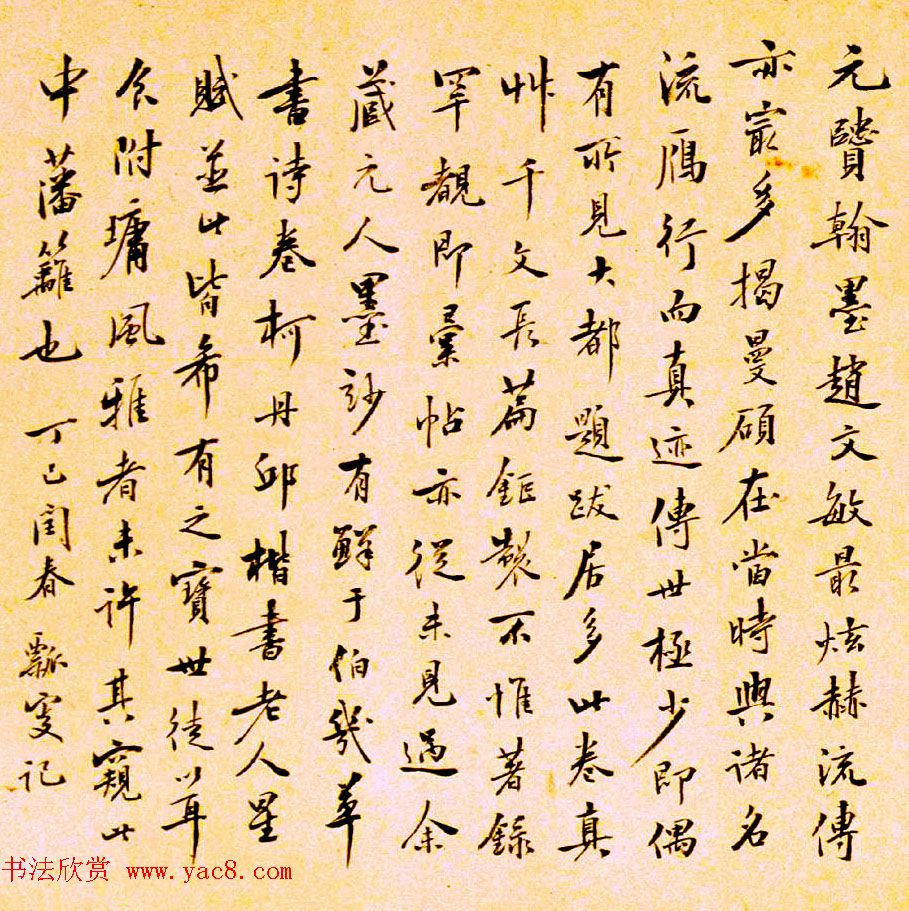 元賢翰墨趙文敏最炫赫流傳
亦寂多揭曼碩在當時與諸名
流鴈行而真迹傳世極少即偶
有所見大都題跋居多此卷真
艸千文長篇鉅製不惟著錄
罕覯即彙帖亦從未見過余
藏元人墨妙有鮮于伯幾草
書詩卷柯丹邱楷書老人星
賦並此皆希有之寶世徒以耳
食附墉風雅者未許其窺此
中藩籬也 丁巳閏春 瓢叟記
书法欣赏 www.yac8.com